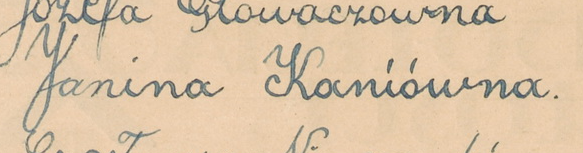 Józefa Głowaczówna
Janina Kaniówna.